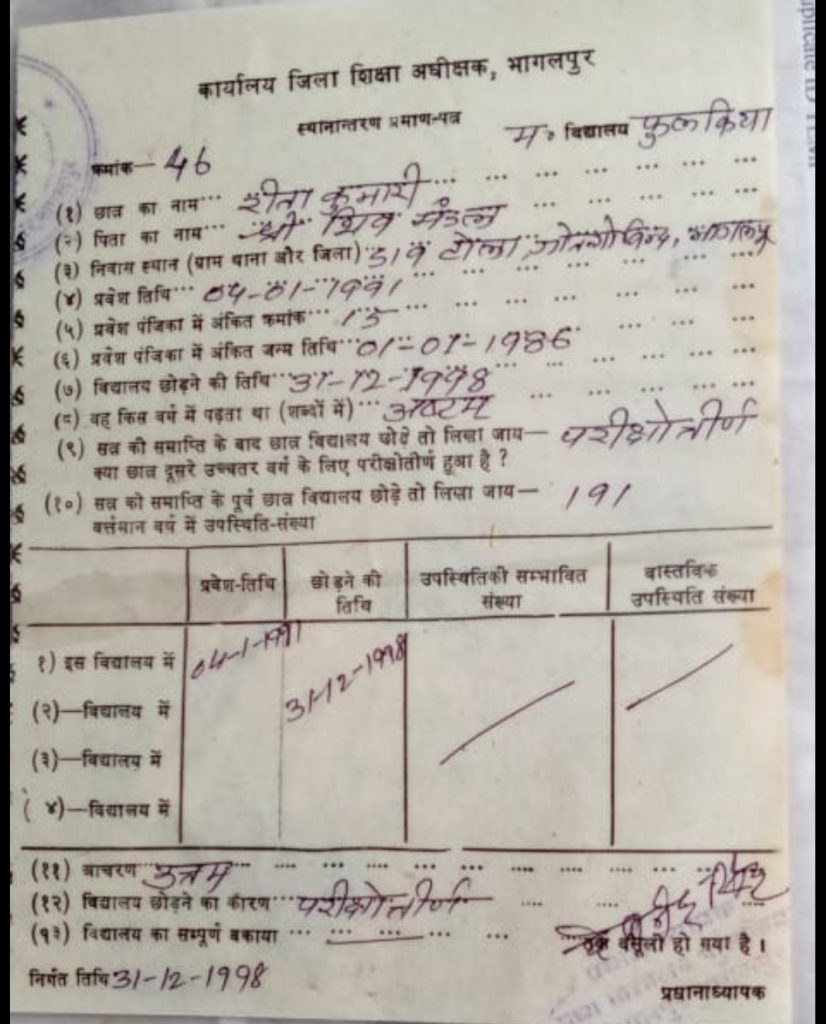 कार्यालय जिला शिक्षा अधीक्षक, भागलपुर
स्थानान्तरण प्रमाण-पत्र
म॰ विद्यालय फुलकिया
क्रमांक— 46
(१) छात्र का नाम··· कुमारी
(२) पिता का नाम··· श्री शिव मंडल
(३) निवास स्थान (ग्राम थाना और जिला) टोला, भागलपुर
(४) प्रवेश तिथि··· 04-01-1991
(५) प्रवेश पंजिका में अंकित क्रमांक··· 15
(६) प्रवेश पंजिका में अंकित जन्म तिथि··· 01-01-1986
(७) विद्यालय छोड़ने की तिथि··· 31-12-1998
(८) वह किस वर्ग में पढ़ता था (शब्दों में)··· अष्टम
(९) सत्र की समाप्ति के बाद छात्र विद्यालय छोड़े तो लिखा जाय— परीक्षोतीर्ण
क्या छात्र दूसरे उच्चतर वर्ग के लिए परीक्षोतीर्ण हुआ है ?
(१०) सत्र को समाप्ति के पूर्व छात्र विद्यालय छोड़े तो लिखा जाय— 191
वर्त्तमान वर्ष में उपस्थिति-संख्या
प्रवेश-तिथि छोड़ने की तिथि उपस्थितिकी सम्भावित संख्या वास्तविक उपस्थिति संख्या
१) इस विद्यालय में 04-1-1991 31-12-1998
(२)—विद्यालय में
(३)—विद्यालय में
( ४)—विद्यालय में
(११) आचरण··· उत्तम
(१२) विद्यालय छोड़ने का कारण··· परीक्षोतीर्ण
(१३) विद्यालय का सम्पूर्ण बकाया ··· तक वसूली हो गया है ।
निर्गत तिथि 31-12-1998
प्रधानाध्यापक